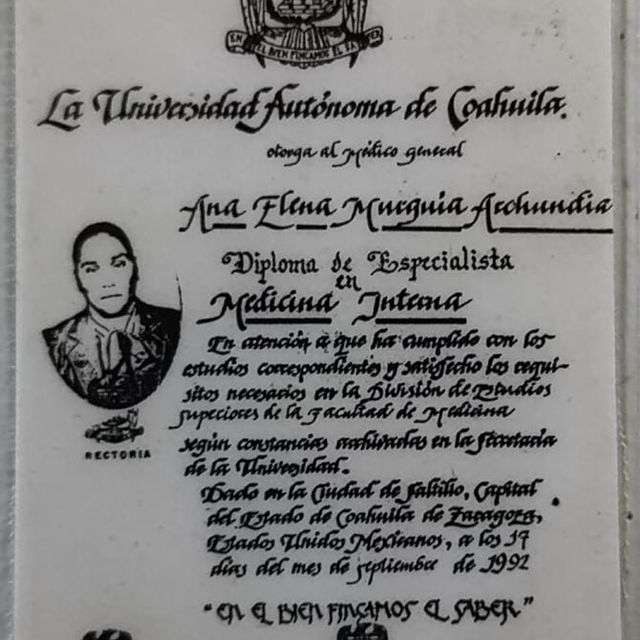 EN EL BIEN FINCAMOS EL SABER
La Universidad Autónoma de Coahuila.
otorga al Médico general
Ana Elena Murguia Archundia
Diploma de Especialista
en
Medicina Interna
En atención a que ha cumplido con los
estudios correspondientes y satisfecho los requi-
sitos necesarios en la División de Estudios
superiores de la Facultad de Medicina
según constancias archivadas en la Secretaria
de la Universidad.
RECTORIA
Dado en la Ciudad de Saltillo, Capital
del Estado de Coahuila de Zaragoza,
Estados Unidos Mexicanos, a los 17
dias del mes de septiembre de 1992
"EN EL BIEN FINCAMOS EL SABER"